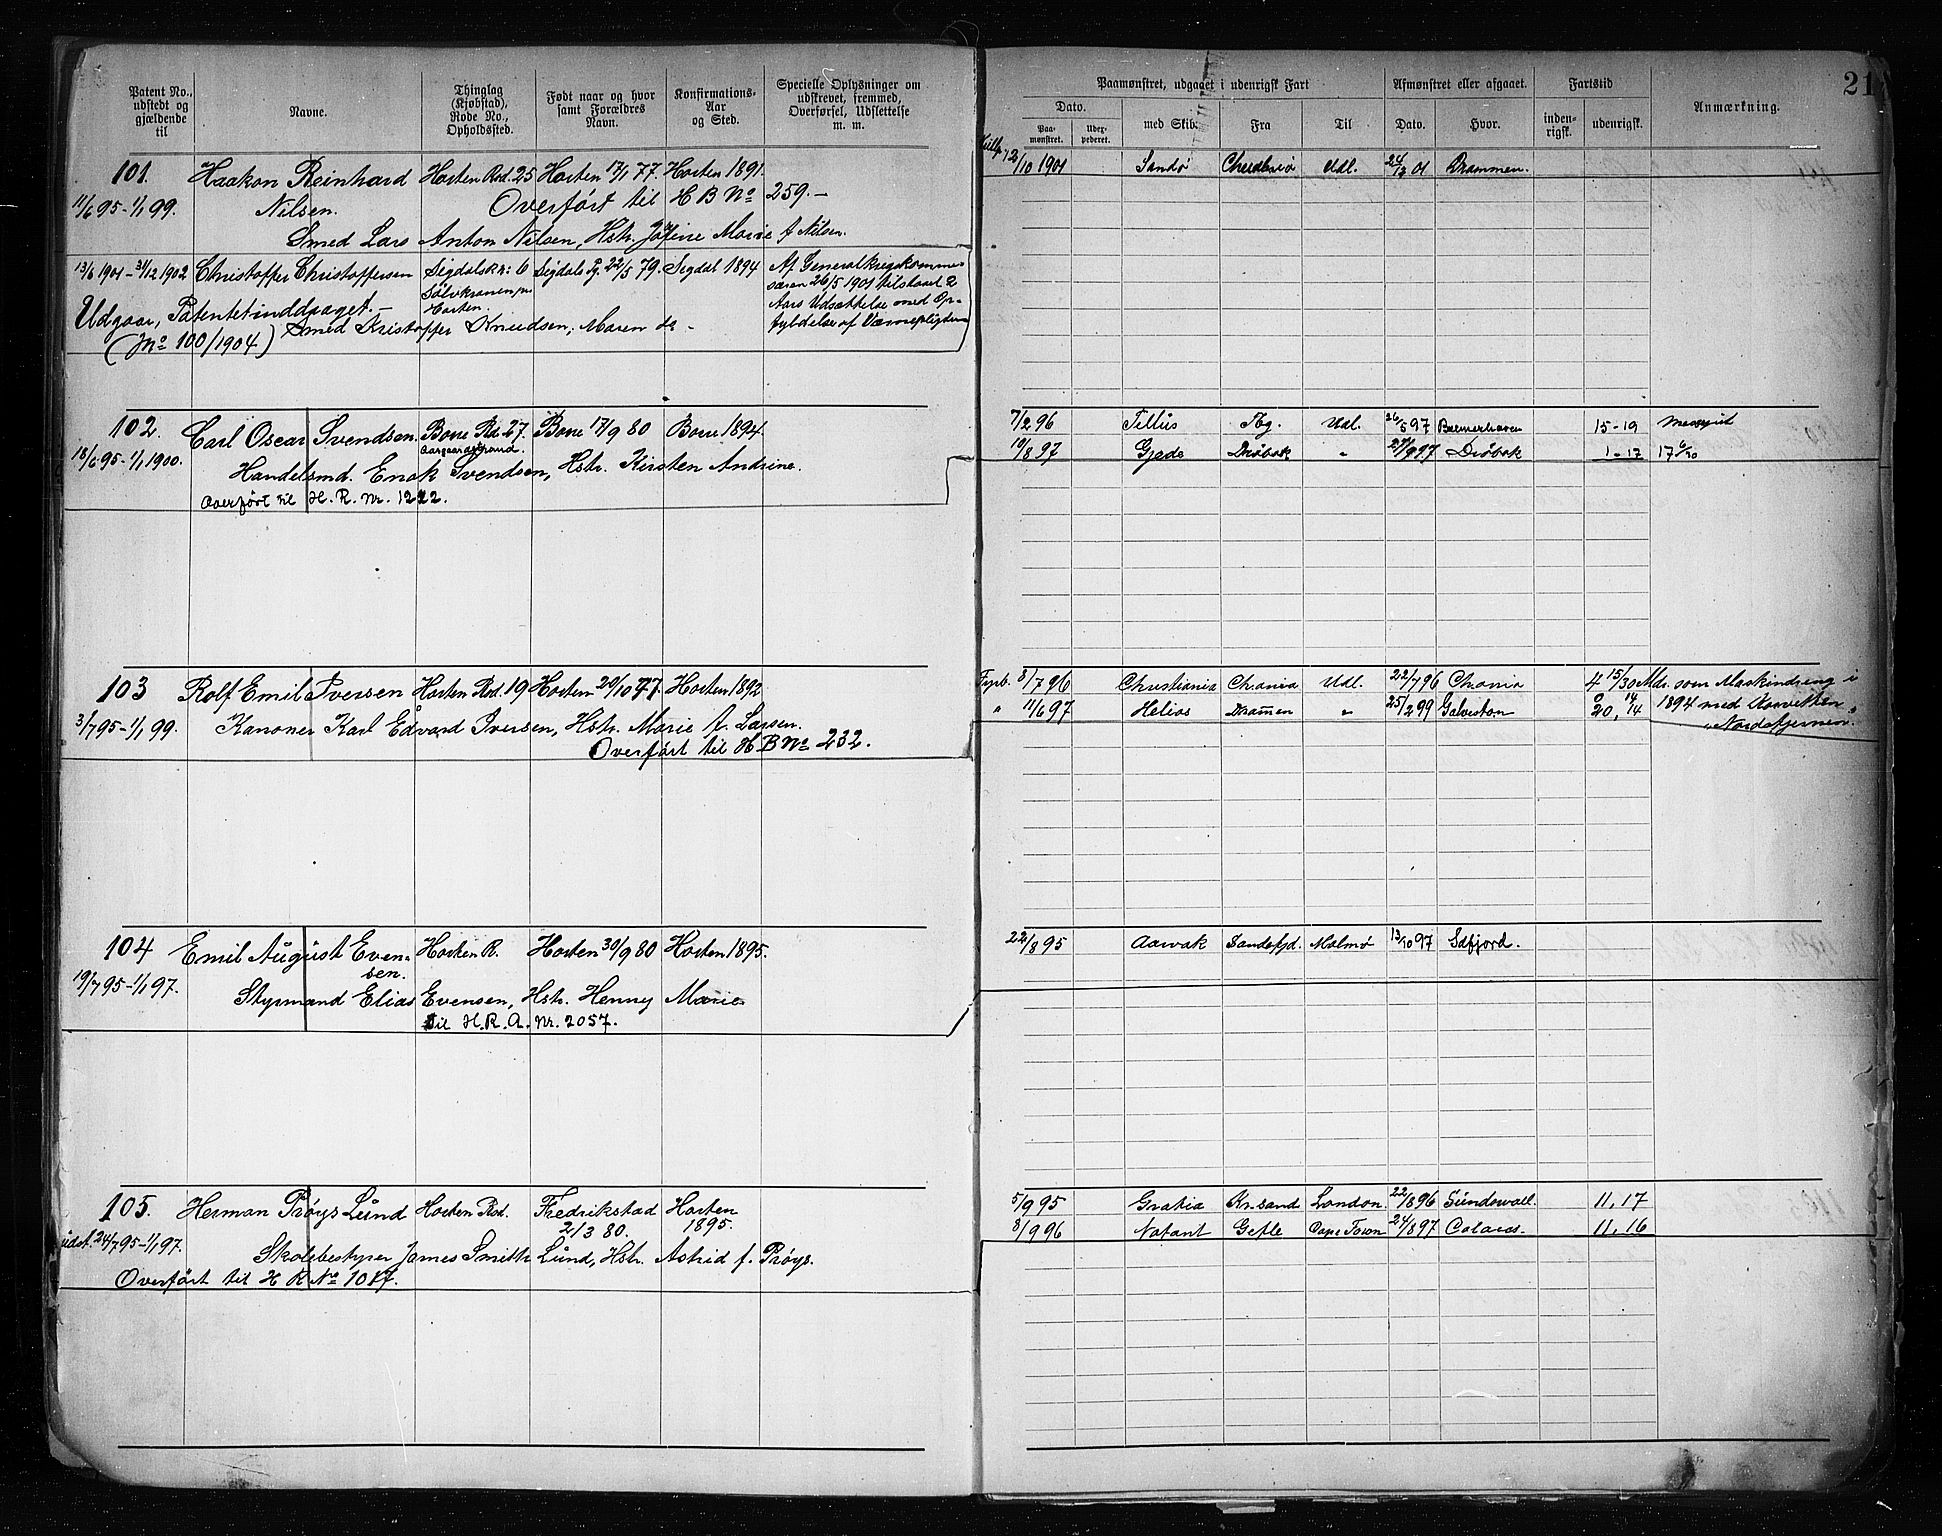 Patent No., udstedt og gjældende til
Navne.
Thinglag (Kjøbstad), Rode No., Opholdssted.
Født naar og hvor samt Forældres Navn.
Konfirmations- Aar og Sted.
Specielle Oplysninger om udskrevet, fremmed, Overførsel, Udslettelse m. m.
101. Haakon Reinhard Horten Rod. 25 Horten 17/1 77. Horten 1891.
11/6 95-1/1 99. Nilsen. Overført til H B No 259.-
Smed Lars Anton Nilsen, Hstr. Marie f. Nilsen.
13/6 1901-31/12 1902 Christoffer Christoffersen Sigdals Kr: 6 Sigdals Pg. 22/5 79. Sigdal 1894 Af Generalkrigskommis-
Horten. særen 26/5 1901 tilstaaet 2
Udgaar, Patentet inddraget.- Aars Udsættelse med Op-
Smed Kristoffer Knudsen, Maren fyldelse af Værnepligten
(No 100/1904)
102. Carl Oscar Svendsen. Borre Rd. 27. Borre 17/9 80 Borre 1894.
18/6 95-1/1 1900. Aasgaardstrand.
Handelsmd. Enok Svendsen, Hstr. Kirsten Andrine.
Overført til H. R. Nr. 1222.
103 Rolf Emil Iversen Horten Rod. 19 Horten 20/10 77. Horten 1892
3/7 95-1/1 99. Kanoner Karl Edvard Iversen, Hstr. Marie f. Larsen.
Overført til H B No 232.
104 Emil August Even- Horten R. Horten 30/9 80 Horten 1895.
sen.
19/7 95-1/1 97. Styrmand Elias Evensen, Hstr. Henny Marie
Til H.R.A. Nr. 2057.
105. Herman Prøys Lund Horten Rod. Fredrikstad Horten
21/3 80. 1895.
udst. 24/7 95-1/1 97. Skolebestyrer James Smith Lund, Hstr. Astrid f. Prøys.
Overført til H R No 1017.
21
Paamønstret, udgaaet i udenrigsk Fart
Afmønstret eller afgaaet.
Fartstid
Anmærkning.
Dato.
Paa- mønstret.
Uder- pederet.
med Skib.
Fra
Til
Dato.
Hvor.
inden- rigsk.
udenrigsk.
12/10 1901 Sandø Udl. Drammen.
7/2 96 Tellus Tbg. Udl. 26/5 97 Bremerhaven 15-19
19/8 97 Gjøde Drøbak " Drøbak 1-17
Fyrb. 8/7 96 Christiania Chrania Udl. 22/7 96 Chrania Mdr. som Maskindreng i
" 11/6 97 Helios Drammen " 25/2 99 Galveston 20, 14/14 1894 med Korvetten
"Nordstjernen".
22/8 95 Aarvak Sandefjd. Malmø 13/10 97 Isefjord.
5/9 95 Gratia Kr.sand London 22/8 96 Sundsvall. 11, 17
8/9 96 Notant Gefle Cape Town 24/8 97 Calais. 11, 16